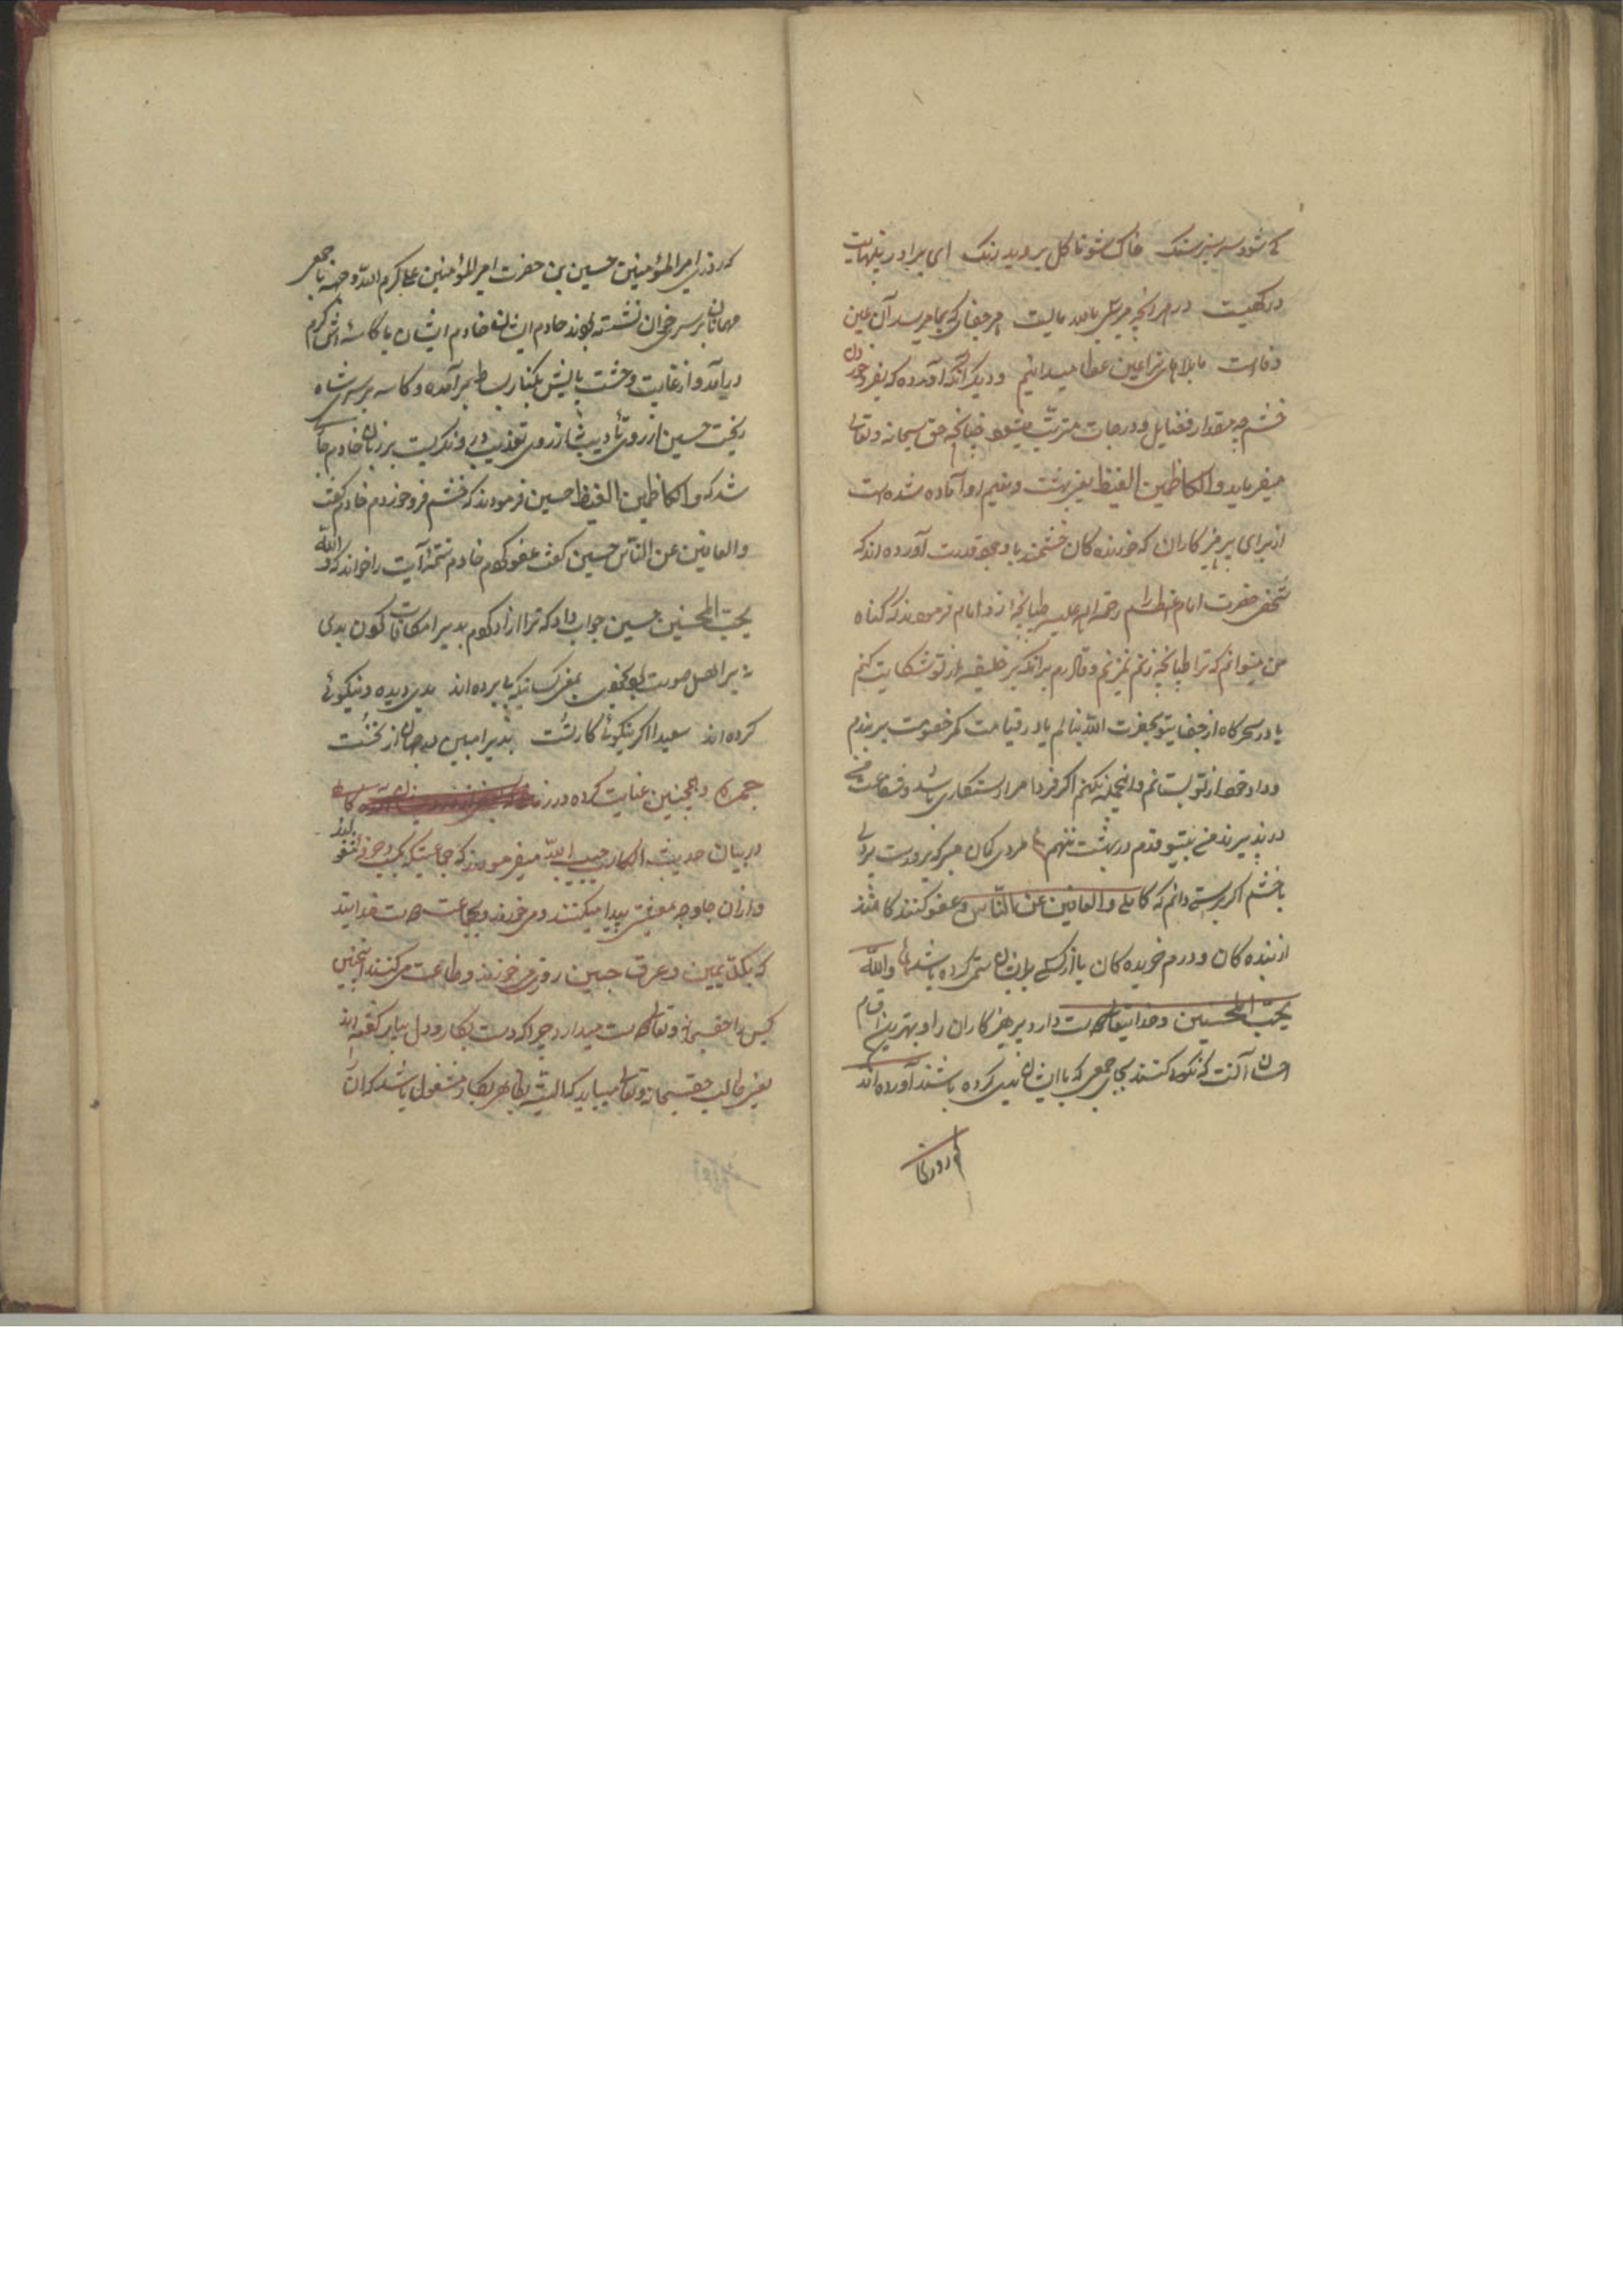 کی شود سرسبز سنگ خاک شو تا گل بروید رنگ ای برادر بنهایت
درگهیست در هر آنچه میرسی بالله مایست هر جفای که بما میرسد آن عین
وفاست ما بلاهای ترا عین عطا میدانیم و دیگر آنکه آورده که بفرو خوردن
خشم چه مقدار فضایل و درجات مترتب میشود چنانچه حق سبحانه و تعالی
میفرماید والکاظمین الغیظ یعنی بهشت و نعیم او آماده شده است
از برای پرهیزکاران که خورنده کان خشمند با وجود قدرت آورده اند که
شخصی حضرت امام اعظم را رحمة الله علیه طپانچه زد امام فرمودند که گناه
من میتوانم که ترا طپانچه زنم نمیزنم و قادرم برانکه بر خلیفه از تو شکایت کنم
یا در سحرگاه از جفای تو بحضرت الله بنالم یا در قیامت کمر خصومت بر بندم
و داد خود از تو بستانم و اینجمله نکنم اگر فردا مرا رستگاری باشد و شفاعت من
در پذیرند من بیتو قدم در بهشت ننهم مردی گمان مبر که بزورست و پردلی
با خشم اگر برآیی دانم که کاملی والعافین عن الناس و عفو کنندگانند
از بنده کان و درم خریده کان یا از کسی که بر ایشان ستمی کرده باشد والله
یحب المحسنین و خدایتعالی دوست دارد پرهیزکاران را و بهترین اقسام
احسان آنست که نکویی کنند بجای جمعی که با ایشان بدی کرده باشند آورده اند
که روزی
که روزی امیرالمؤمنین حسین بن حضرت امیرالمؤمنین علی کرم الله وجهه با جمعی
مهمانان بر سر خوان نشسته بودند خادم ایشان خادم ایشان با کاسه آش گرم
درآمد و از غایت وحشت پایش بکنار بساط برآمده و کاسه بر سر شاه
ریخت حسین از روی تأدیب نه از روی تعذیب در و نگریست بر زبان خادم جاری
شد که والکاظمین الغیظ حسین فرمودند که خشم فرو خوردم خادم گفت
والعافین عن الناس حسین گفت عفو کردم خادم تتمه آیت را خواند که والله
یحب المحسنین حسین جواب داد که ترا آزاد کردم بدیرا مکافات کردن بدی
بر اهل صورت بود بخردی بمعنی کسانیکه پی برده اند بدی دیده و نیکوئی
کرده اند سعیدا اگر نیکوئی کار تست
همچنین عنایت کرده
در بیان حدیث الکاسب حبیب الله میفرمودند که جماعتیکه بکسب و حرفه مشغولند
و از آن جا وجه معیشتی پیدا میکنند و میخورند و بجماعت دوست خدایند
که بکد یمین و عرق جبین روزی میخورند و طاعت میکنند اینچنین
کس را حقسبحانه و تعالی دوست میدارد چرا که دست بکار و دل بیار گفته اند
یعنی طالب حقسبحانه و تعالی میباید که البته بظاهر بکار مشغول باشد که آن را